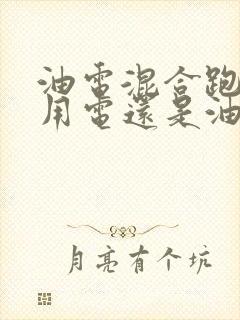 油電混合跑
用電還是油
月亮有个坑